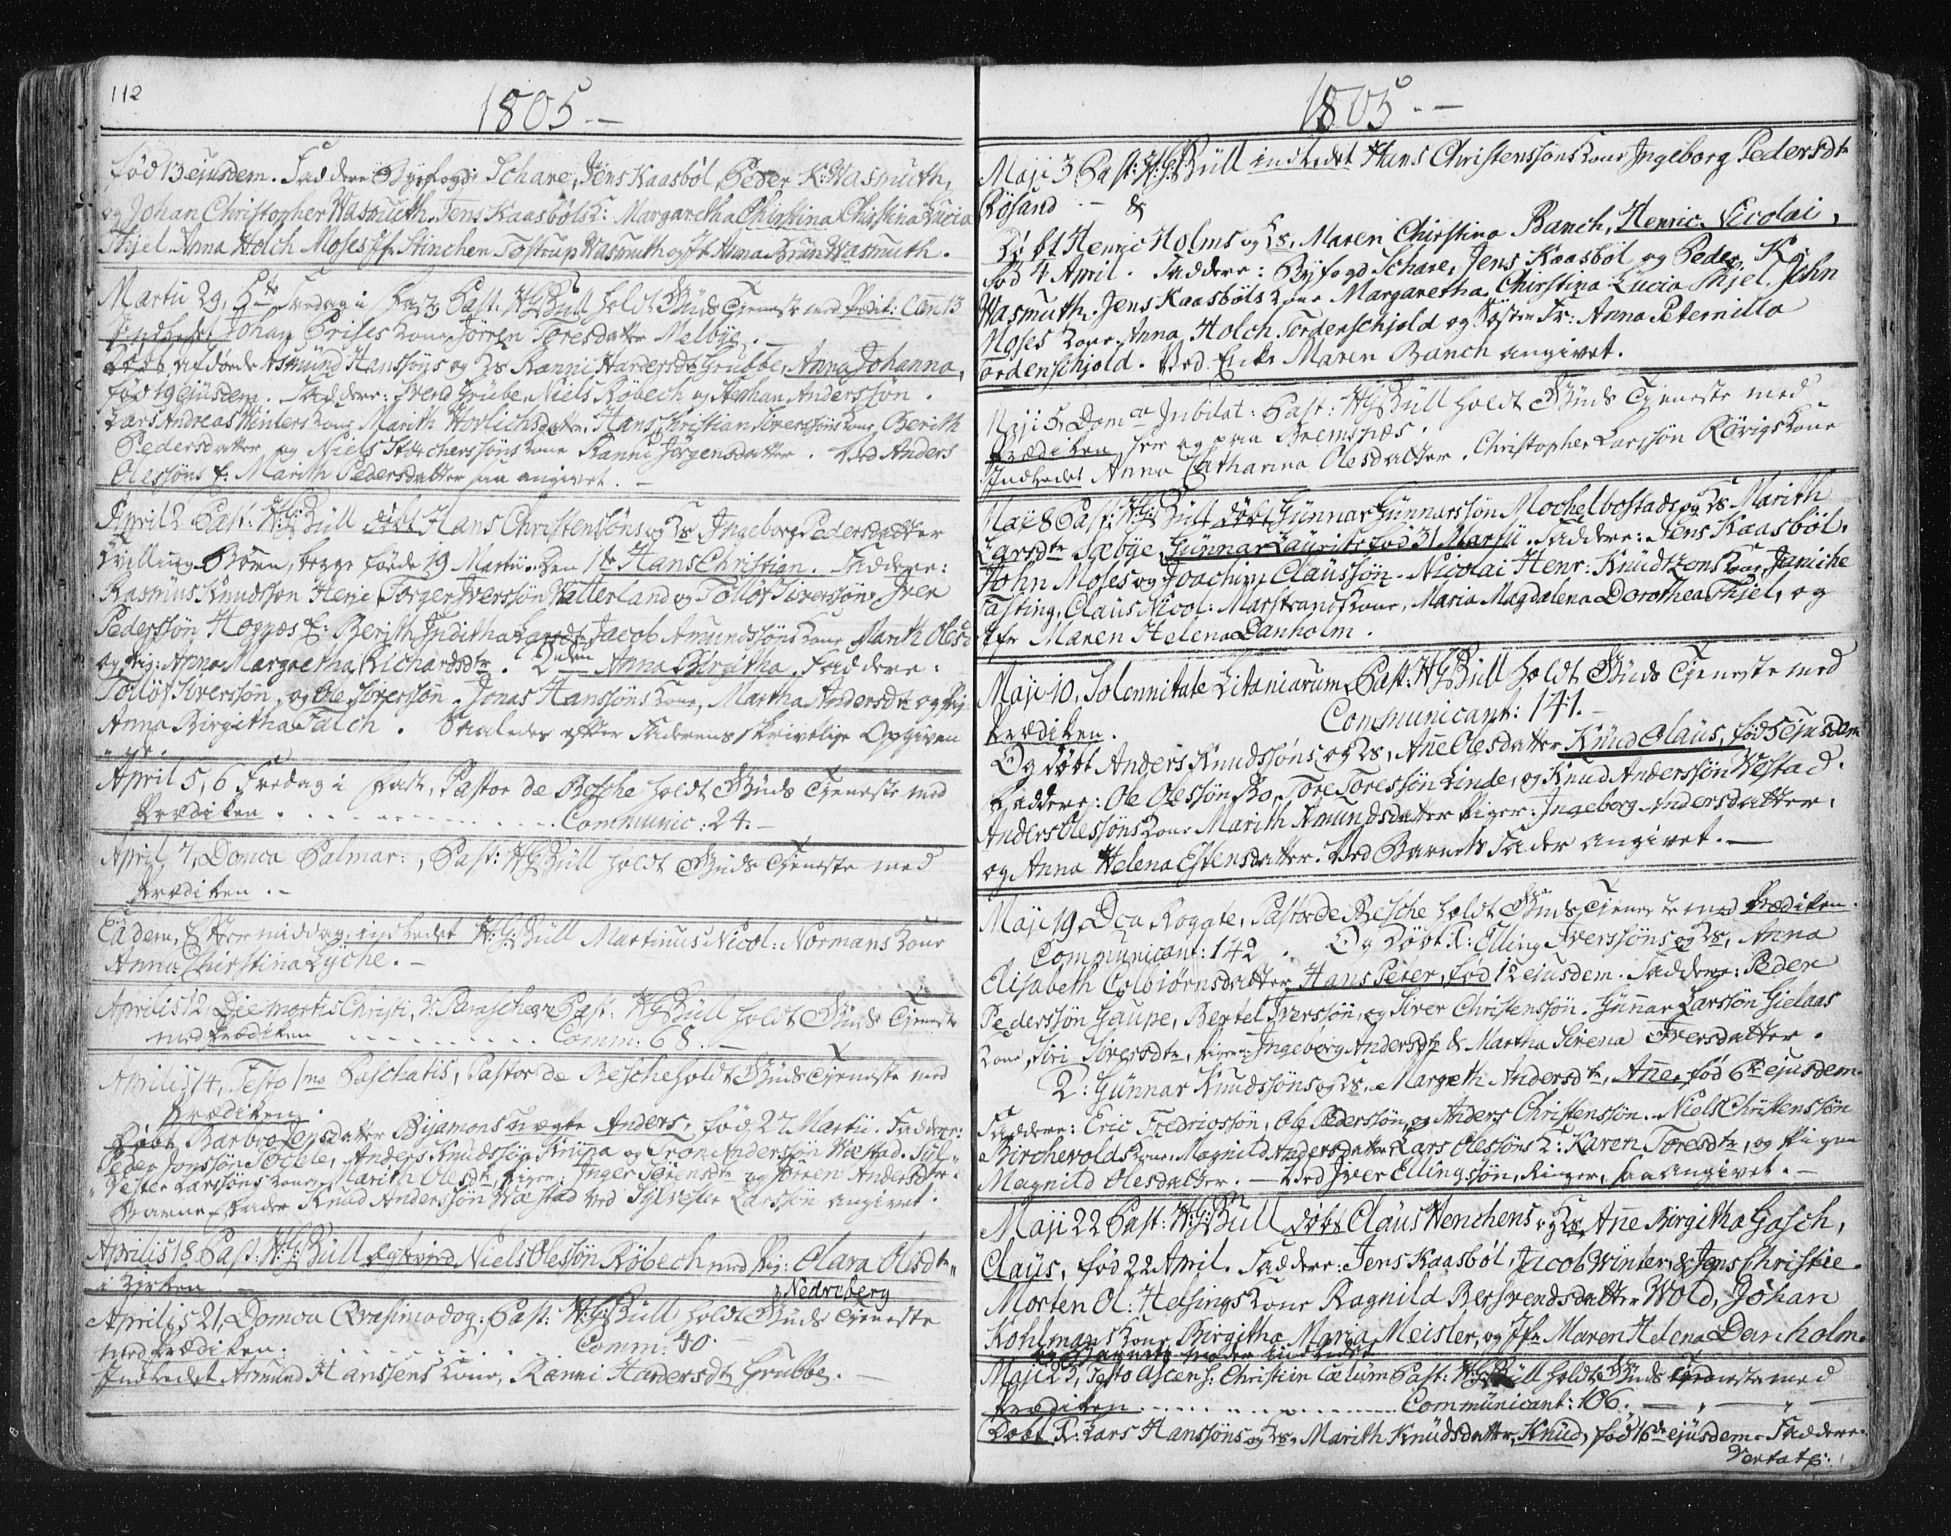 112
1805.—
Fød 13 ejusdem. Faddere: Byefogd Schare, Jens Kaasbøl, Peder K: Wasmuth,
og Johan Christopher Wasmuth. Jens Kaasbøls K: Margaretha Christina Lucia
Thjel Anna Holch Moses Jfr Stinchen Tostrup Wasmuth og Jfr Anna Brun Wasmuth.
Martii 29, Fredag i Faste, Past: HGBüll holdt Guds Tjeneste med
Indledet Johan Grises Kone Sørren Toresdatter Melbye.
Døbt Asmund Hanssøns og Hs Ranni Handersdtr Grubbe, Anna Johanna,
Fød 19 ejusdem. Faddere: Svend Grube, Niels Röbech og Stephan Anderssøn.
Lars Andreas Winters Kone Marith Worlichsdatter, Hans Christian Iverssøns Kone Berith
Pedersdatter og Niels Storcherssøns Kone Ranni Jørgensdatter. Ved Anders
Olessøns E: Marith Pedersdatter saa angivet.—
April 2 Past: HGBüll døbt Hans Christenssøns og Hs Ingeborg Pedersdatter
Tvilling Børn, begge fødde 19 Martii. Den 1te Hans Christian. Faddere:
Rasmus Knudssøn Henr, Torger Iverssøn Watterland og Tolløf Siverssøn, Iver
Pederssøn Hognæs E: Berith Juditha Larsdtr Jacob Amundssøns Kone Marith Olesd
og Pig: Anna Margaretha Richardsdtr. Den anden Anna Birgitha. Faddere:
Tolløf Siverssøn, og Ole Siverssøn, Jonas Hanssøns Kone, Martha Andersdtr og Pig
Anna Birgitha Falch. Saaledes efter Faderens skrivtlige Opgiven
April 5, 6 Fredag i Fast, Pastor de Besche holdt Guds Tjeneste med
Prædiken. . . . . . . . . . Communic: 24.—
April 7, Domca Palmar:, Past: HGBüll holdt Guds Tjeneste med
Prædiken.—
Eadem, Eftermiddag indledet HGBüll Martinus Nicol: Normans Kone
Anna Christina Lyche.—
Aprilis 12, Die mortis Christi, Past: HGBüll holdt Guds Tjeneste
med Prædiken . . . . . . . . . . Comm: 68.—
Aprilis 14, Festo 1mo Paschatis, Pastor de Besche holdt Guds Tjeneste med
Prædiken.
Døbt Barbro Jensdatter Bijamons uægte Anders, fød 27 Martii. Faddere:
Peder Jonssøn, Anders Knudssøn og Tron Anderssøn Wæstad. Syl-
vester Larssøns Kone Marith Olesdtr, Piger: Inger Sørensdtr og Søren Andersdtr.
Barne Fader Knud Anderssøn Wæstad ved Sylvester Larssøn angivet.
Aprilis 18 Past: HGBüll Niels Olessøn Röbech med Pig: Clara Olsdtr
i Kirken.— Nedreberg
Aprilis 21, Domca Qvasimodog: Past: HGBüll holdt Guds Tjeneste
med Prædiken. . . . . . . Comm: 40.—
Indledet Asmund Hanssens Kone, Ranni Handersdtr Grubbe.—
1805.—
Maji 3 Past: HGBüll indledet Hans Christenssøns Kone Ingeborg Pedersdtr
Røsand.— &
Døbt Henric Holms og Hs, Maren Christina Banch, Henric Nicolai,
Fød 4 April. Faddere: Byfogd Schare, Jens Kaasbøl og Peder K:
Wasmuth. Jens Kaasbøls Kone Margaretha Christina Lucia Thjel, John
Moses Kone Anna Holch Tordenschjold og Søster Fr: Anna Peternilla
Tordenschjold. Ved Enke Maren Banch angivet.
Maji 5, Domca Jubilat: Past: HGBüll holdt Guds Tjeneste med
Prædiken her og paa Bremsnæs.
Indledet Anna Catharina Olesdatter, Christopher Larssøn Rørigs Kone
Maji 8 Past: HGBüll døbt Günnar Günnarssøn Mochelbostads og Hs Marith
Larsdtr Sæbye, Günnar Laurits fød 31 Martii. Faddere: Jens Kaasbøl,
John Moses og Joachim Claüssøn. Nicolai Henr: Knüdtzons Kone Janiche
Fasting, Claüs Nicol: Marstrands Kone, Maria Magdalena Dorothea Thjel, og
Jfr Maren Helena Danholm.
Maji 10, Solennitate Litaniarum, Past: HGBüll holdt Guds Tjeneste med
Prædiken. Communicant: 141.
Og døbt Anders Knudssøns og Hs, Anne Olesdatter Knüd Claüs, fød 5 ejusdem
Faddere: Ole Olessøn Bo, Tore Toressøn Linde, og Knud Anderssøn Westad.
Anders Olessøns Kone Marith Amundsdatter Piger: Ingeborg Andersdatter,
og Anna Helena Estensdatter. Ved Barnets Fader angivet.—
Maji 19, Dca Rogate, Pastor de Besche holdt Guds Tjeneste med Prædiken.
Communicant: 142. Og døbt 1: Elling Iverssøns og Hs, Anna
Elisabeth Esbiørnsdatter Hans Peter, fød 12 ejusdem. Faddere: Peder
Pederssøn Gaupe, Bertel Iverssøn, og Siver Christenssøn. Günnar Larssøn Gielaas
Kone, Siri Siversdtr, Piger: Ingeborg Andersdtr & Martha Sirena Iversdatter.
2: Günnar Knudssøns og Hs. Margreth Andersdtr, Anne, fød 6te ejusdem.
Faddere: Eric Fredricssøn, Ole Pederssøn, og Anders Christenssøn. Niels Christenssøn
Birchevolds Kone, Magnild Andersdatter Lars Olessøns K: Karen Toresdtr, og Pigen
Magnild Olesdatter.— Ved Iver Ellingssøn, Ringer, saa angivet.—
Maji 22 Past: HGBüll døbt Claüs Henchens og Hs Anne Birgitha Gasch,
Claüs, fød 22 April. Faddere: Jens Kaasbøl, Jacob Winter & Jens Christie.
Morten Ol: Helsings Kone Ragnild Bersvendsdatter Wold, Johan
Kohlmans Kone Birgitha Maria Meisler, og Jfr Maren Helena Danholm.
og Barnets Moder indledet
Maji 23, Festo Ascens: Christi in Cælum Past: HGBüll holdt Guds Tjeneste med
Prædiken . . . . . . . . . . Communicant: 106.—
Døbt 1: Lars Hanssøns og Hs. Marith Knüdsdatter, Knüd, fød 16de ejusdem. Faddere
Vertatg: